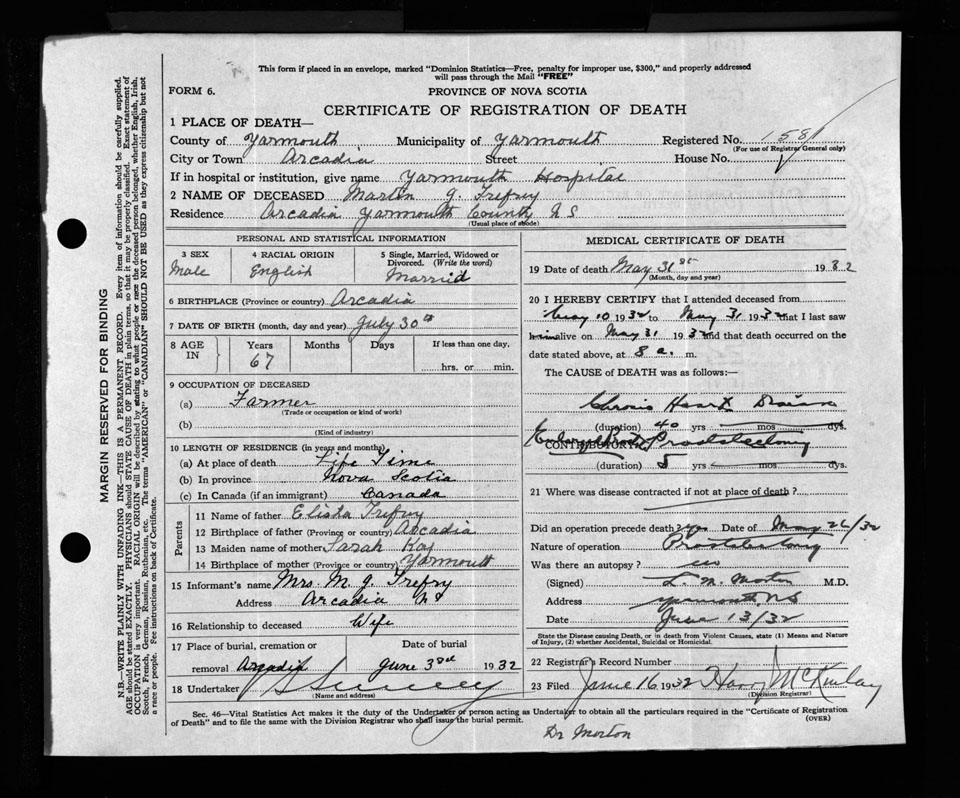 This form if placed in an envelope, marked "Dominion Statistics—Free, penalty for improper use, $300," and properly addressed
will pass through the Mail "FREE"
FORM 6.
PROVINCE OF NOVA SCOTIA
CERTIFICATE OF REGISTRATION OF DEATH
1 PLACE OF DEATH—
County of Yarmouth Municipality of Yarmouth Registered No. 1581
(For use of Registrar General only)
City or Town Arcadia Street House No.
If in hospital or institution, give name Yarmouth Hospital
2 NAME OF DECEASED Martin J. Trefry
Residence Arcadia Yarmouth County N S
(Usual place of abode)
PERSONAL AND STATISTICAL INFORMATION
3 SEX 4 RACIAL ORIGIN 5 Single, Married, Widowed or
Divorced. (Write the word)
Male English Married
6 BIRTHPLACE (Province or country) Arcadia
7 DATE OF BIRTH (month, day and year) July 30th
8 AGE IN Years Months Days If less than one day,
67 hrs. or min.
9 OCCUPATION OF DECEASED
(a) Farmer
(Trade or occupation or kind of work)
(b)
(Kind of industry)
10 LENGTH OF RESIDENCE (in years and months)
(a) At place of death Life Time
(b) In province Nova Scotia
(c) In Canada (if an immigrant) Canada
Parents
11 Name of father Elisha Trefry
12 Birthplace of father (Province or country) Arcadia
13 Maiden name of mother Sarah Kay
14 Birthplace of mother (Province or country) Yarmouth
15 Informant's name Mrs. M. J. Trefry
Address Arcadia N S
16 Relationship to deceased Wife
17 Place of burial, cremation or Date of burial
removal Arcadia June 3rd 1932
18 Undertaker
(Name and address)
MEDICAL CERTIFICATE OF DEATH
19 Date of death May 31st 1932
(Month, day and year)
20 I HEREBY CERTIFY that I attended deceased from
May 10 1932 to May 31 1932 that I last saw
him alive on May 31 1932 and that death occurred on the
date stated above, at 8 a. m.
The CAUSE of DEATH was as follows:—
Chronic Heart
(duration) 40 yrs mos dys.
CONTRIBUTORY Prostatectomy
(duration) 5 yrs mos dys.
21 Where was disease contracted if not at place of death?
Did an operation precede death? yes Date of May 26/32
Nature of operation Prostatectomy
Was there an autopsy? no
(Signed) L. M. Morton M.D.
Address Yarmouth, N S
Date June 13/32
State the Disease causing Death, or in death from Violent Causes, state (1) Means and Nature
of Injury, (2) whether Accidental, Suicidal or Homicidal.
22 Registrar's Record Number
23 Filed June 16 1932 Harry McKinlay
(Division Registrar)
Sec. 46—Vital Statistics Act makes it the duty of the Undertaker or person acting as Undertaker to obtain all the particulars required in the "Certificate of Registration
of Death" and to file the same with the Division Registrar who shall issue the burial permit.
(OVER)
Dr Morton
MARGIN RESERVED FOR BINDING
N.B.—WRITE PLAINLY WITH UNFADING INK—THIS IS A PERMANENT RECORD. Every item of information should be carefully supplied.
AGE should be stated EXACTLY. PHYSICIANS should STATE CAUSE OF DEATH in plain terms, so that it may be properly classified. Exact statement of
OCCUPATION is very important. RACIAL ORIGIN will be described by stating to what people or race the deceased person belonged, whether English, Irish,
Scotch, French, German, Russian, Ruthenian, etc. The terms "AMERICAN" or "CANADIAN" SHOULD NOT BE USED as they express citizenship but not
a race or people. See instructions on back of Certificate.